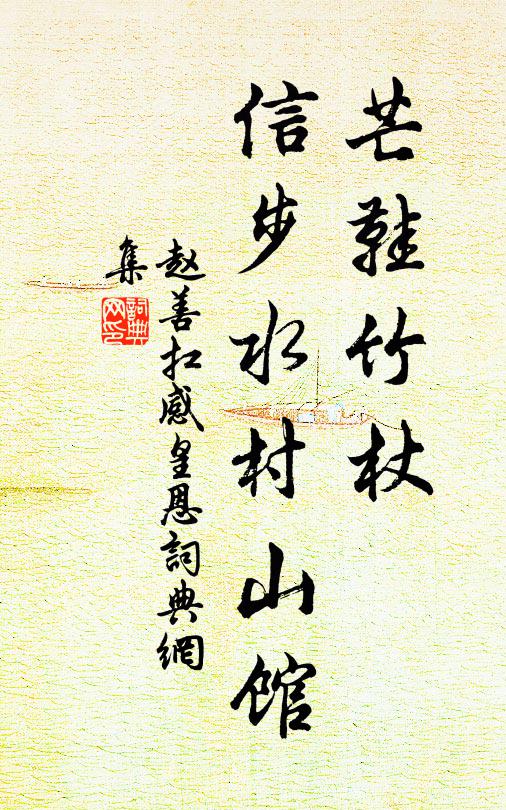 芒鞋竹杖
信步水村山馆
赵善扛感皇恩詞典網
集
詞典
网印